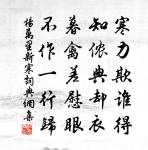 寒力欺誰得
知儂典却衣
暮禽差慰眼
不作一行歸
楊萬里新寒詞典網集